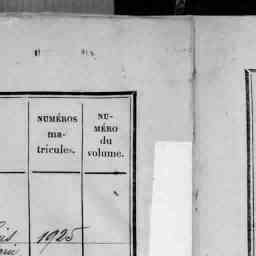 NUMÉROS
ma-
tricules.
NU-
MÉRO
du
volume.
1925